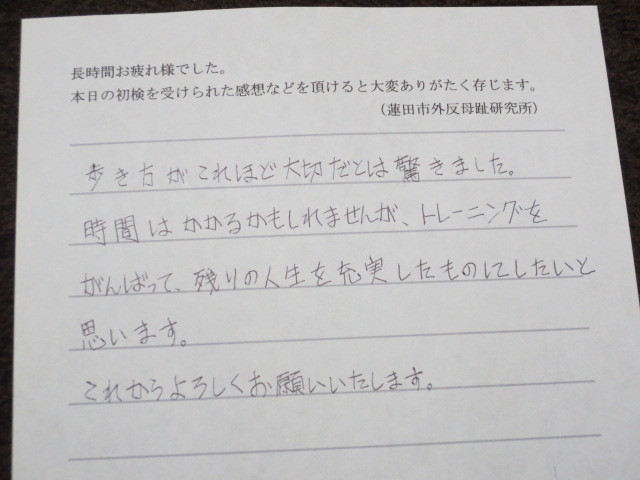 長時間お疲れ様でした。
本日の初検を受けられた感想などを頂けると大変ありがたく存じます。
（蓮田市外反母趾研究所）
歩き方がこれほど大切だとは驚きました。
時間はかかるかもしれませんが、トレーニングを
がんばって、残りの人生を充実したものにしたいと
思います。
これからよろしくお願いいたします。